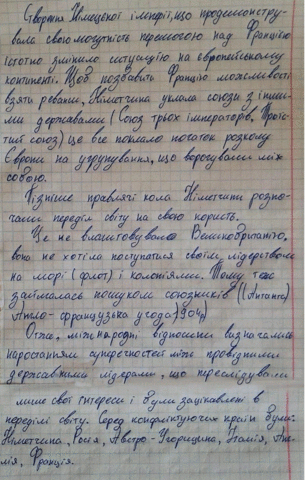 Створення Німецької імперії, що продемонстру-
вала свою могутність перемогою над Францією
істотно змінило ситуацію на європейському
континенті. Щоб позбавити Францію можливості
взяти реванш, Німеччина уклала союзи з інши-
ми державами (Союз трьох імператорів, Троїс-
тий союз) це все поклало початок розколу
Європи на угрупування, що ворогували між
собою.
Пізніше правлячі кола Німеччини розпо-
чали переділ світу на свою користь.
Це не влаштовувало Великобританію,
вона не хотіла поступатися своїм лідерством
на морі (флот) і колоніями. Тому теж
займалась пошуком союзників (Антанта)
Англо-французька угода 1904)
Отже, міжнародні відносини визначались
наростанням суперечностей між провідними
державними лідерами, що переслідували
лише свої інтереси і були зацікавлені в
переділі світу. Серед конфліктуючих країн були:
Німеччина, Росія, Австро-Угорщина, Італія, Анг-
лія, Франція.